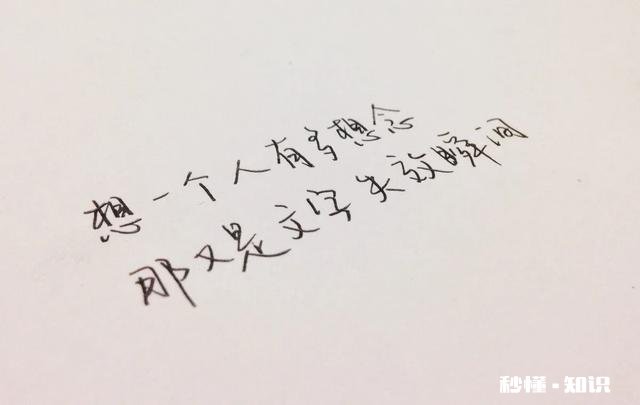 想一个人有多想念
那又是文字失效瞬间
秒懂·知识